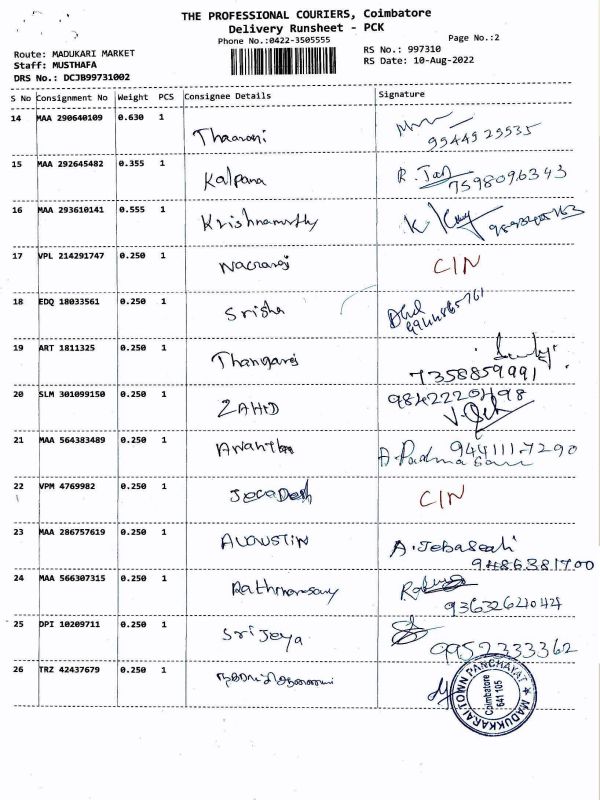 THE PROFESSIONAL COURIERS, Coimbatore
Delivery Runsheet - PCK
Phone No.:0422-3505555
Page No.:2
Route: MADUKARI MARKET
Staff: MUSTHAFA
DRS No.: DCJB99731002
RS No.: 997310
RS Date: 10-Aug-2022
S No Consignment No Weight PCS Consignee Details Signature
14 MAA 290640109 0.630 1
9944929535
15 MAA 292645482 0.355 1 Kalpana
7598096343
16 MAA 293610141 0.555 1 Krishnamurthy
17 VPL 214291747 0.250 1 Nagaraj CIN
18 EDQ 18033561 0.250 1 Srisha
19 ART 1811325 0.250 1 Thangaraj
7358859991
20 SLM 301099150 0.250 1 ZAHID
9842220498
21 MAA 564383489 0.250 1
9441117290
22 VPM 4769982 0.250 1 CIN
23 MAA 286757619 0.250 1 AUGUSTIN
9486381700
24 MAA 566307315 0.250 1
25 DPI 10209711 0.250 1 Srijeya
9952333362
26 TRZ 42437679 0.250 1
MADUKKARAI TOWN PANCHAYAT
Coimbatore
641 105